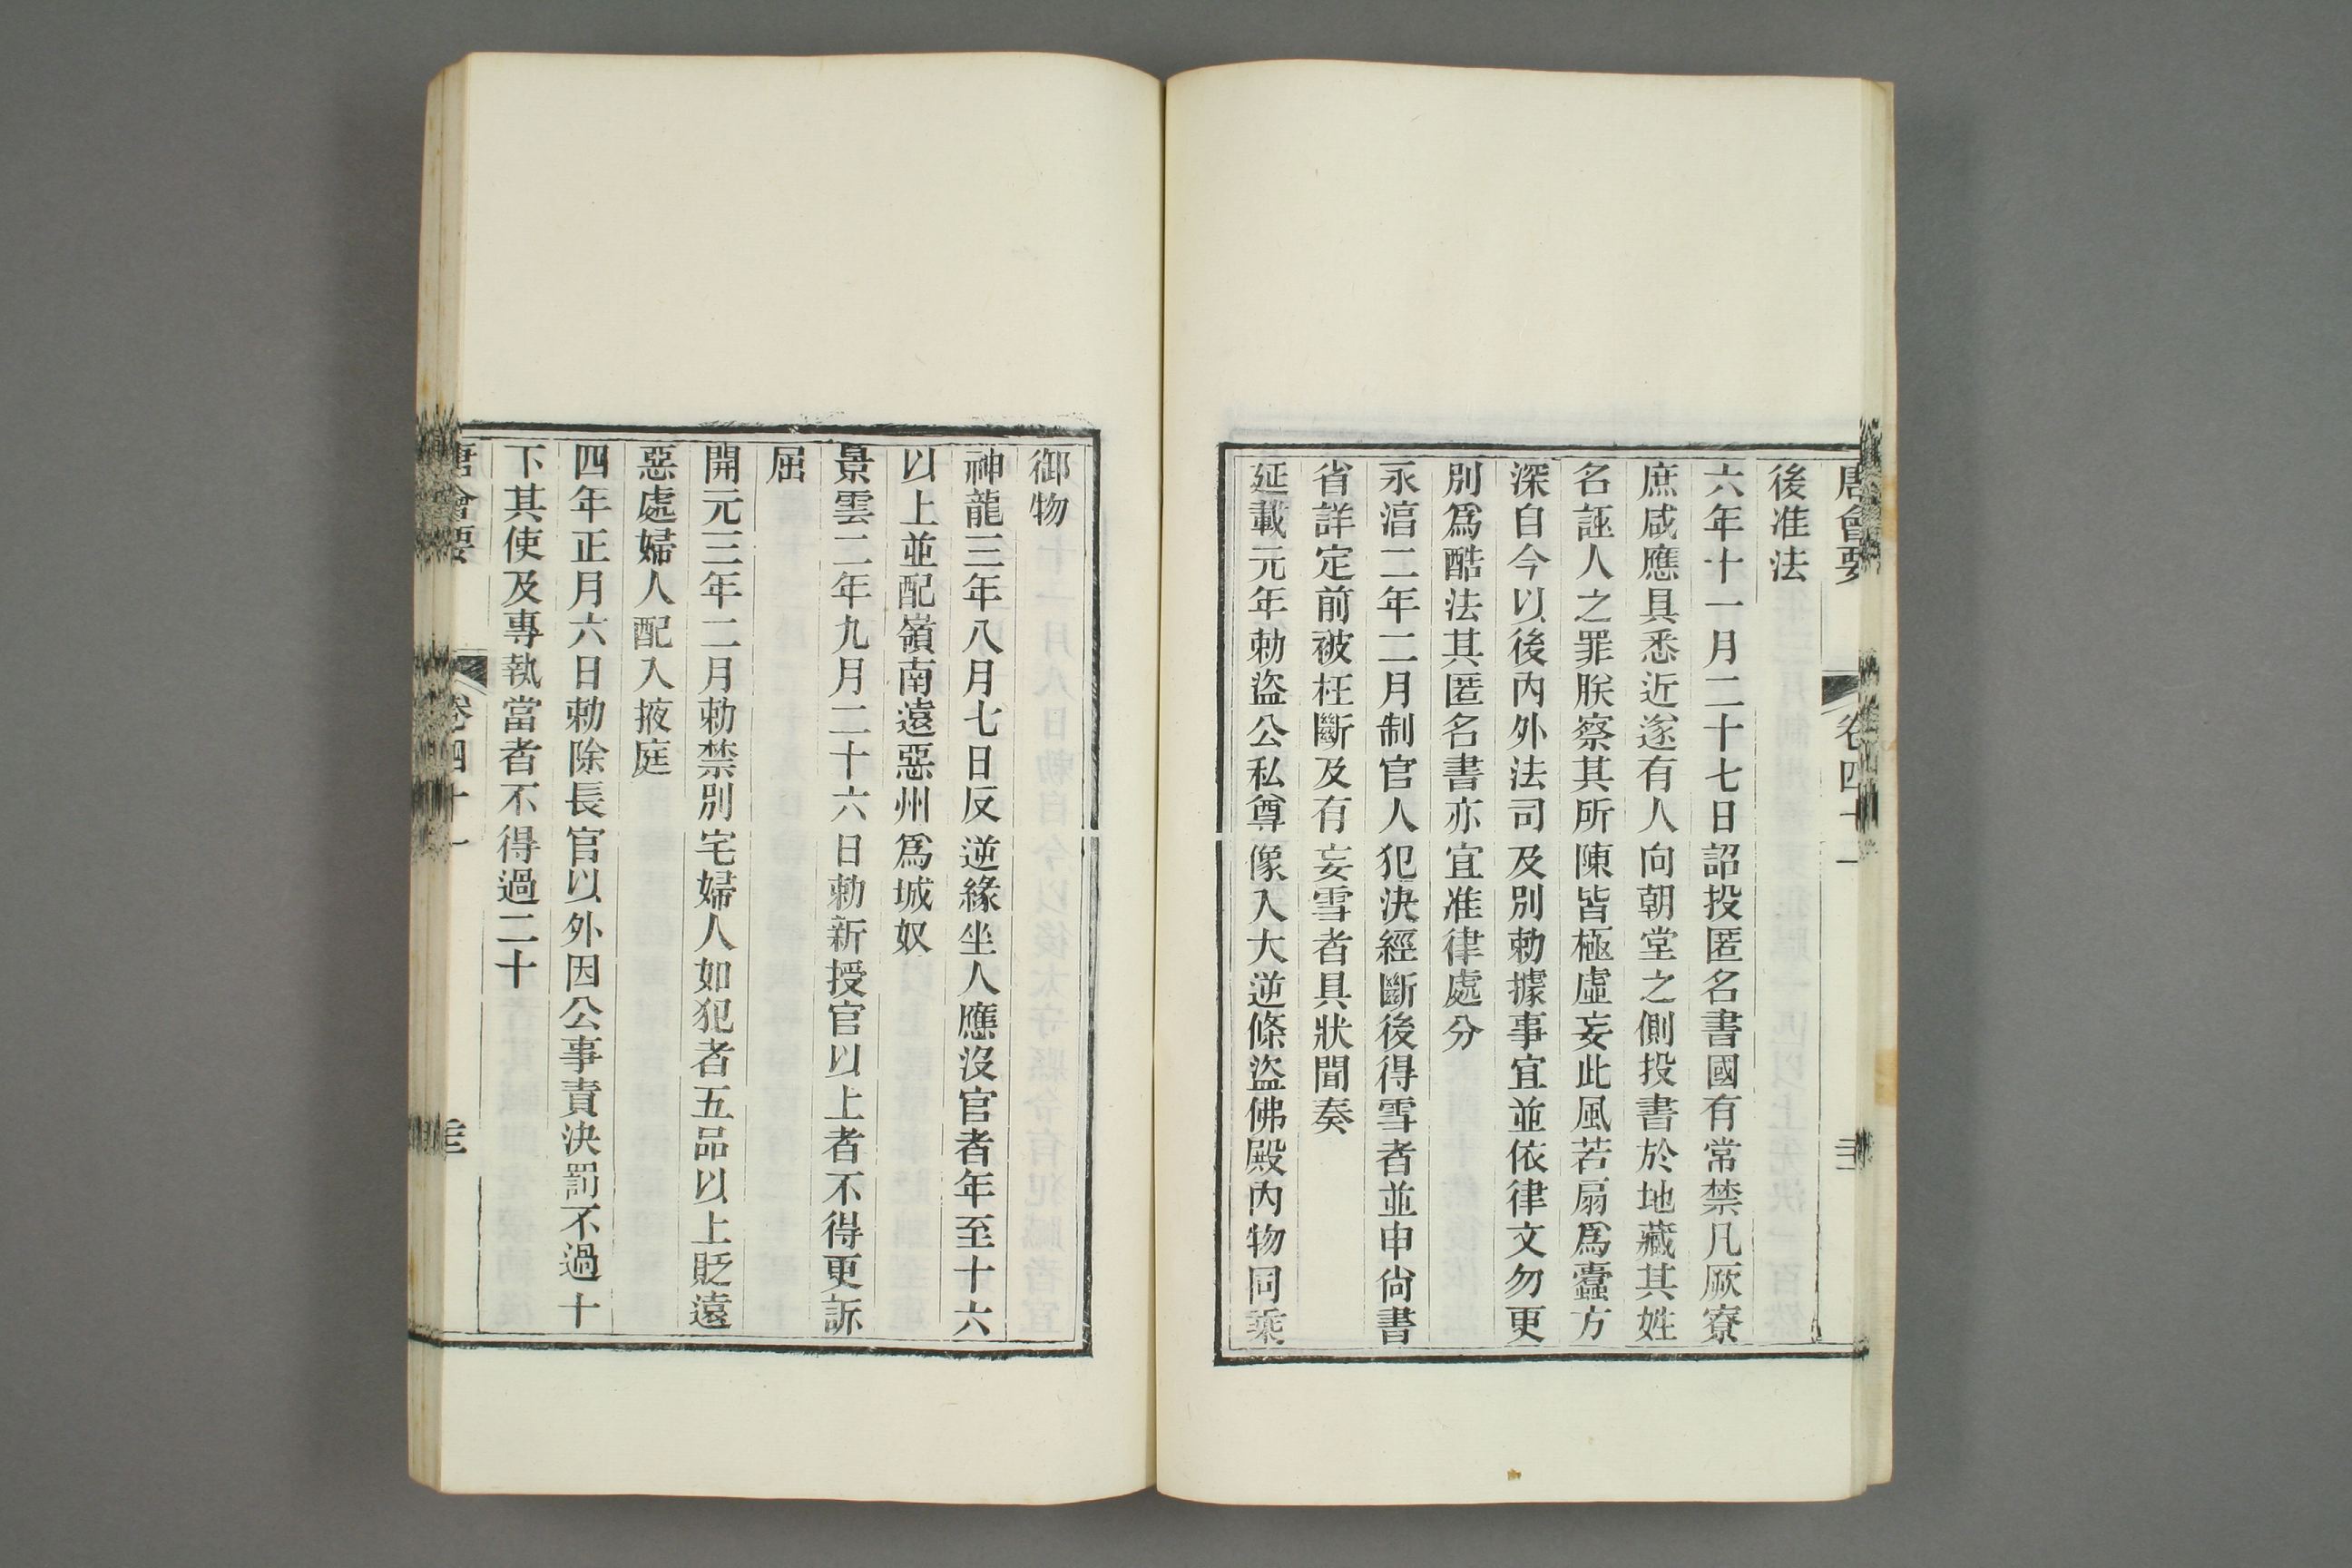 唐會要 卷四十一
後准法
六年十一月二十七日詔投匿名書國有常禁凡厥寮
庶咸應具悉近遂有人向朝堂之側投書於地藏其姓
名誣人之罪朕察其所陳皆極虛妄此風若扇爲蠹方
深自今以後內外法司及別勅據事宜並依律文勿更
別爲酷法其匿名書亦宜准律處分
永淳二年二月制官人犯決經斷後得雪者並申尙書
省詳定前被枉斷及有妄雪者具狀聞奏
延載元年勅盜公私尊像入大逆條盜佛殿內物同乘
御物
神龍三年八月七日反逆緣坐人應沒官者年至十六
以上並配嶺南遠惡州爲城奴
景雲二年九月二十六日勅新授官以上者不得更訴
屈
開元三年二月勅禁別宅婦人如犯者五品以上貶遠
惡處婦人配入掖庭
四年正月六日勅除長官以外因公事責決罰不過十
下其使及專執當者不得過二十
唐會要 卷四十一